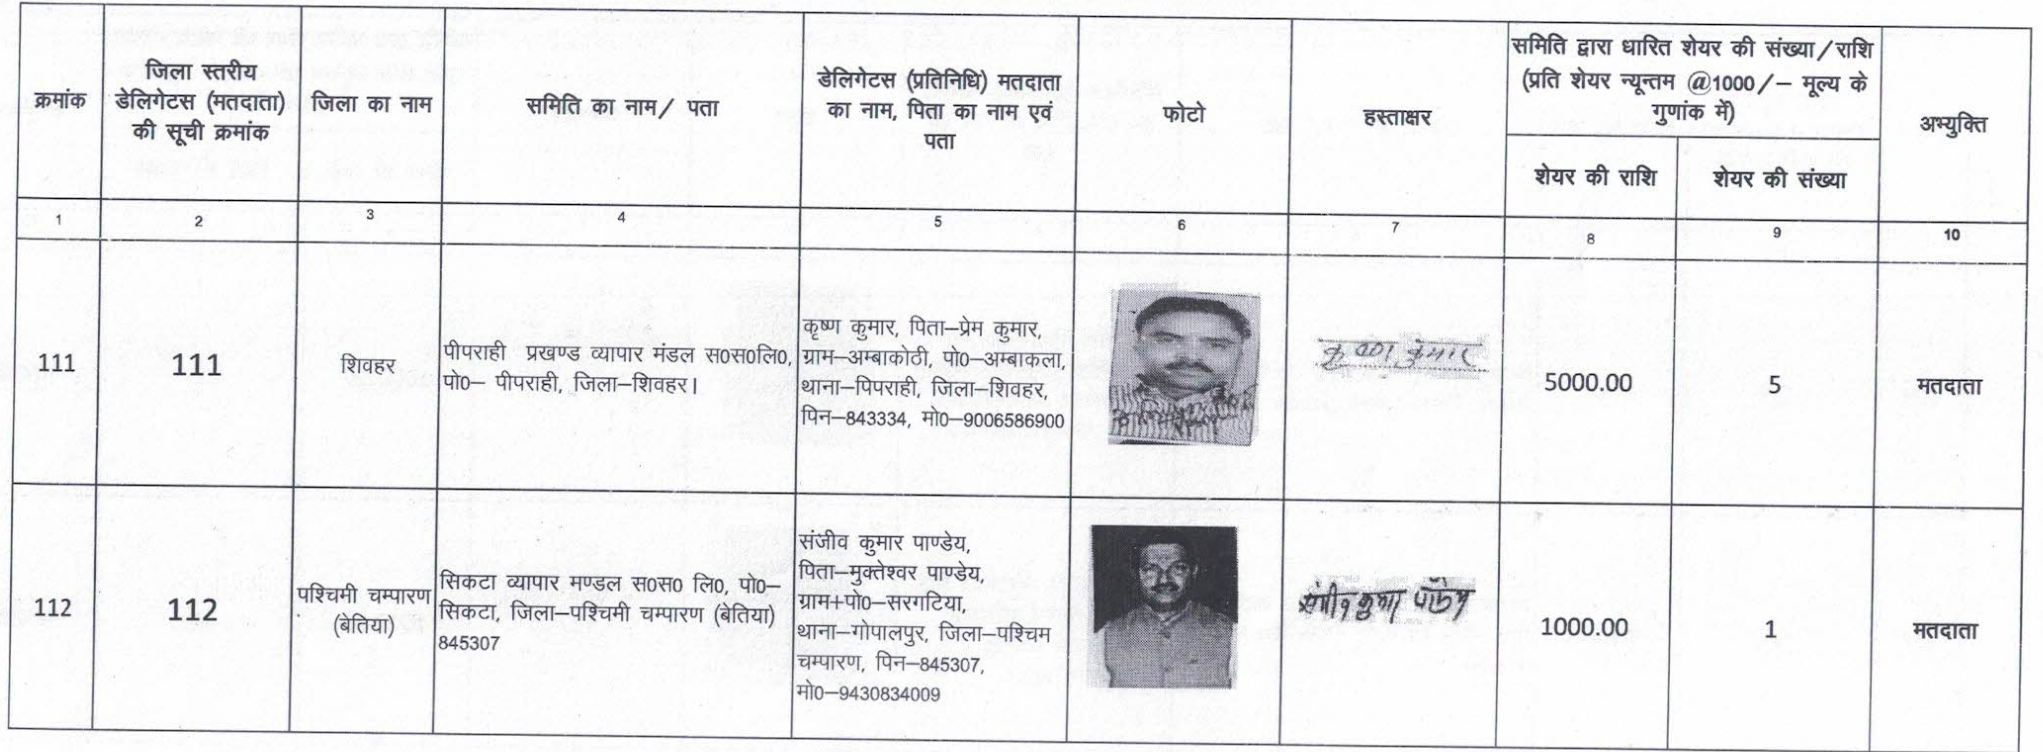 क्रमांक
जिला स्तरीय
डेलिगेटस (मतदाता)
की सूची क्रमांक
जिला का नाम
समिति का नाम/ पता
डेलिगेटस (प्रतिनिधि) मतदाता
का नाम, पिता का नाम एवं
पता
फोटो
हस्ताक्षर
समिति द्वारा धारित शेयर की संख्या/राशि
(प्रति शेयर न्यून्तम @1000/– मूल्य के
गुणांक में)
शेयर की राशि
शेयर की संख्या
अभ्युक्ति
1
2
3
4
5
6
7
8
9
10
111
111
शिवहर
पीपराही प्रखण्ड व्यापार मंडल स0स0लि0,
पो0– पीपराही, जिला–शिवहर।
कृष्ण कुमार, पिता–प्रेम कुमार,
ग्राम–अम्बाकोठी, पो0–अम्बाकला,
थाना–पिपराही, जिला–शिवहर,
पिन–843334, मो0–9006586900
कृष्ण कुमार
5000.00
5
मतदाता
112
112
पश्चिमी चम्पारण
(बेतिया)
सिकटा व्यापार मण्डल स0स0 लि0, पो0–
सिकटा, जिला–पश्चिमी चम्पारण (बेतिया)
845307
संजीव कुमार पाण्डेय,
पिता–मुक्तेश्वर पाण्डेय,
ग्राम+पो0–सरगटिया,
थाना–गोपालपुर, जिला–पश्चिम
चम्पारण, पिन–845307,
मो0–9430834009
संजीव कुमार पाण्डेय
1000.00
1
मतदाता